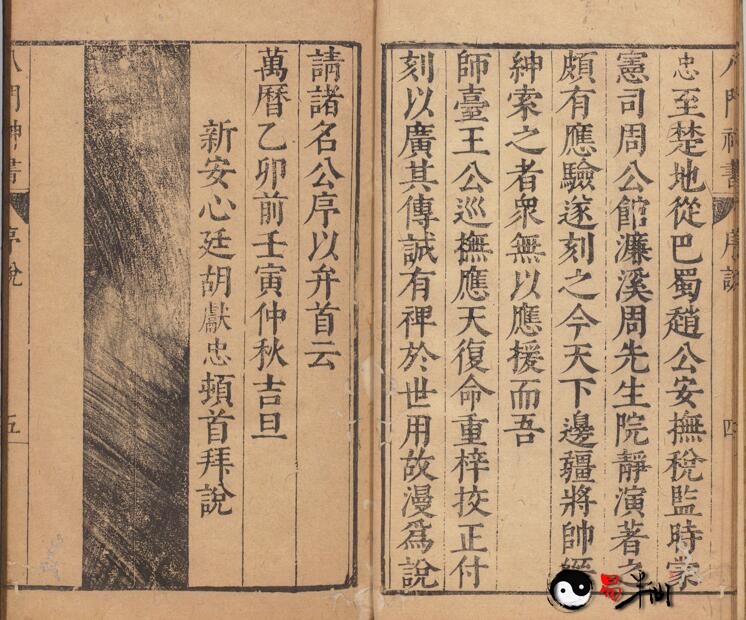 八門神書 序說 四
忠至楚地從巴蜀趙公安撫稅監時蒙
憲司周公館濂溪周先生院靜演著之
頗有應驗遂刻之今天下邊疆將帥
紳索之者衆無以應援而吾
師臺王公巡撫應天復命重梓挍正付
刻以廣其傳誠有裨於世用故漫爲說
請諸名公序以弁首云
萬曆乙卯前壬寅仲秋吉旦
新安心廷胡獻忠頓首拜說
八門神書 序說 五
易半仙